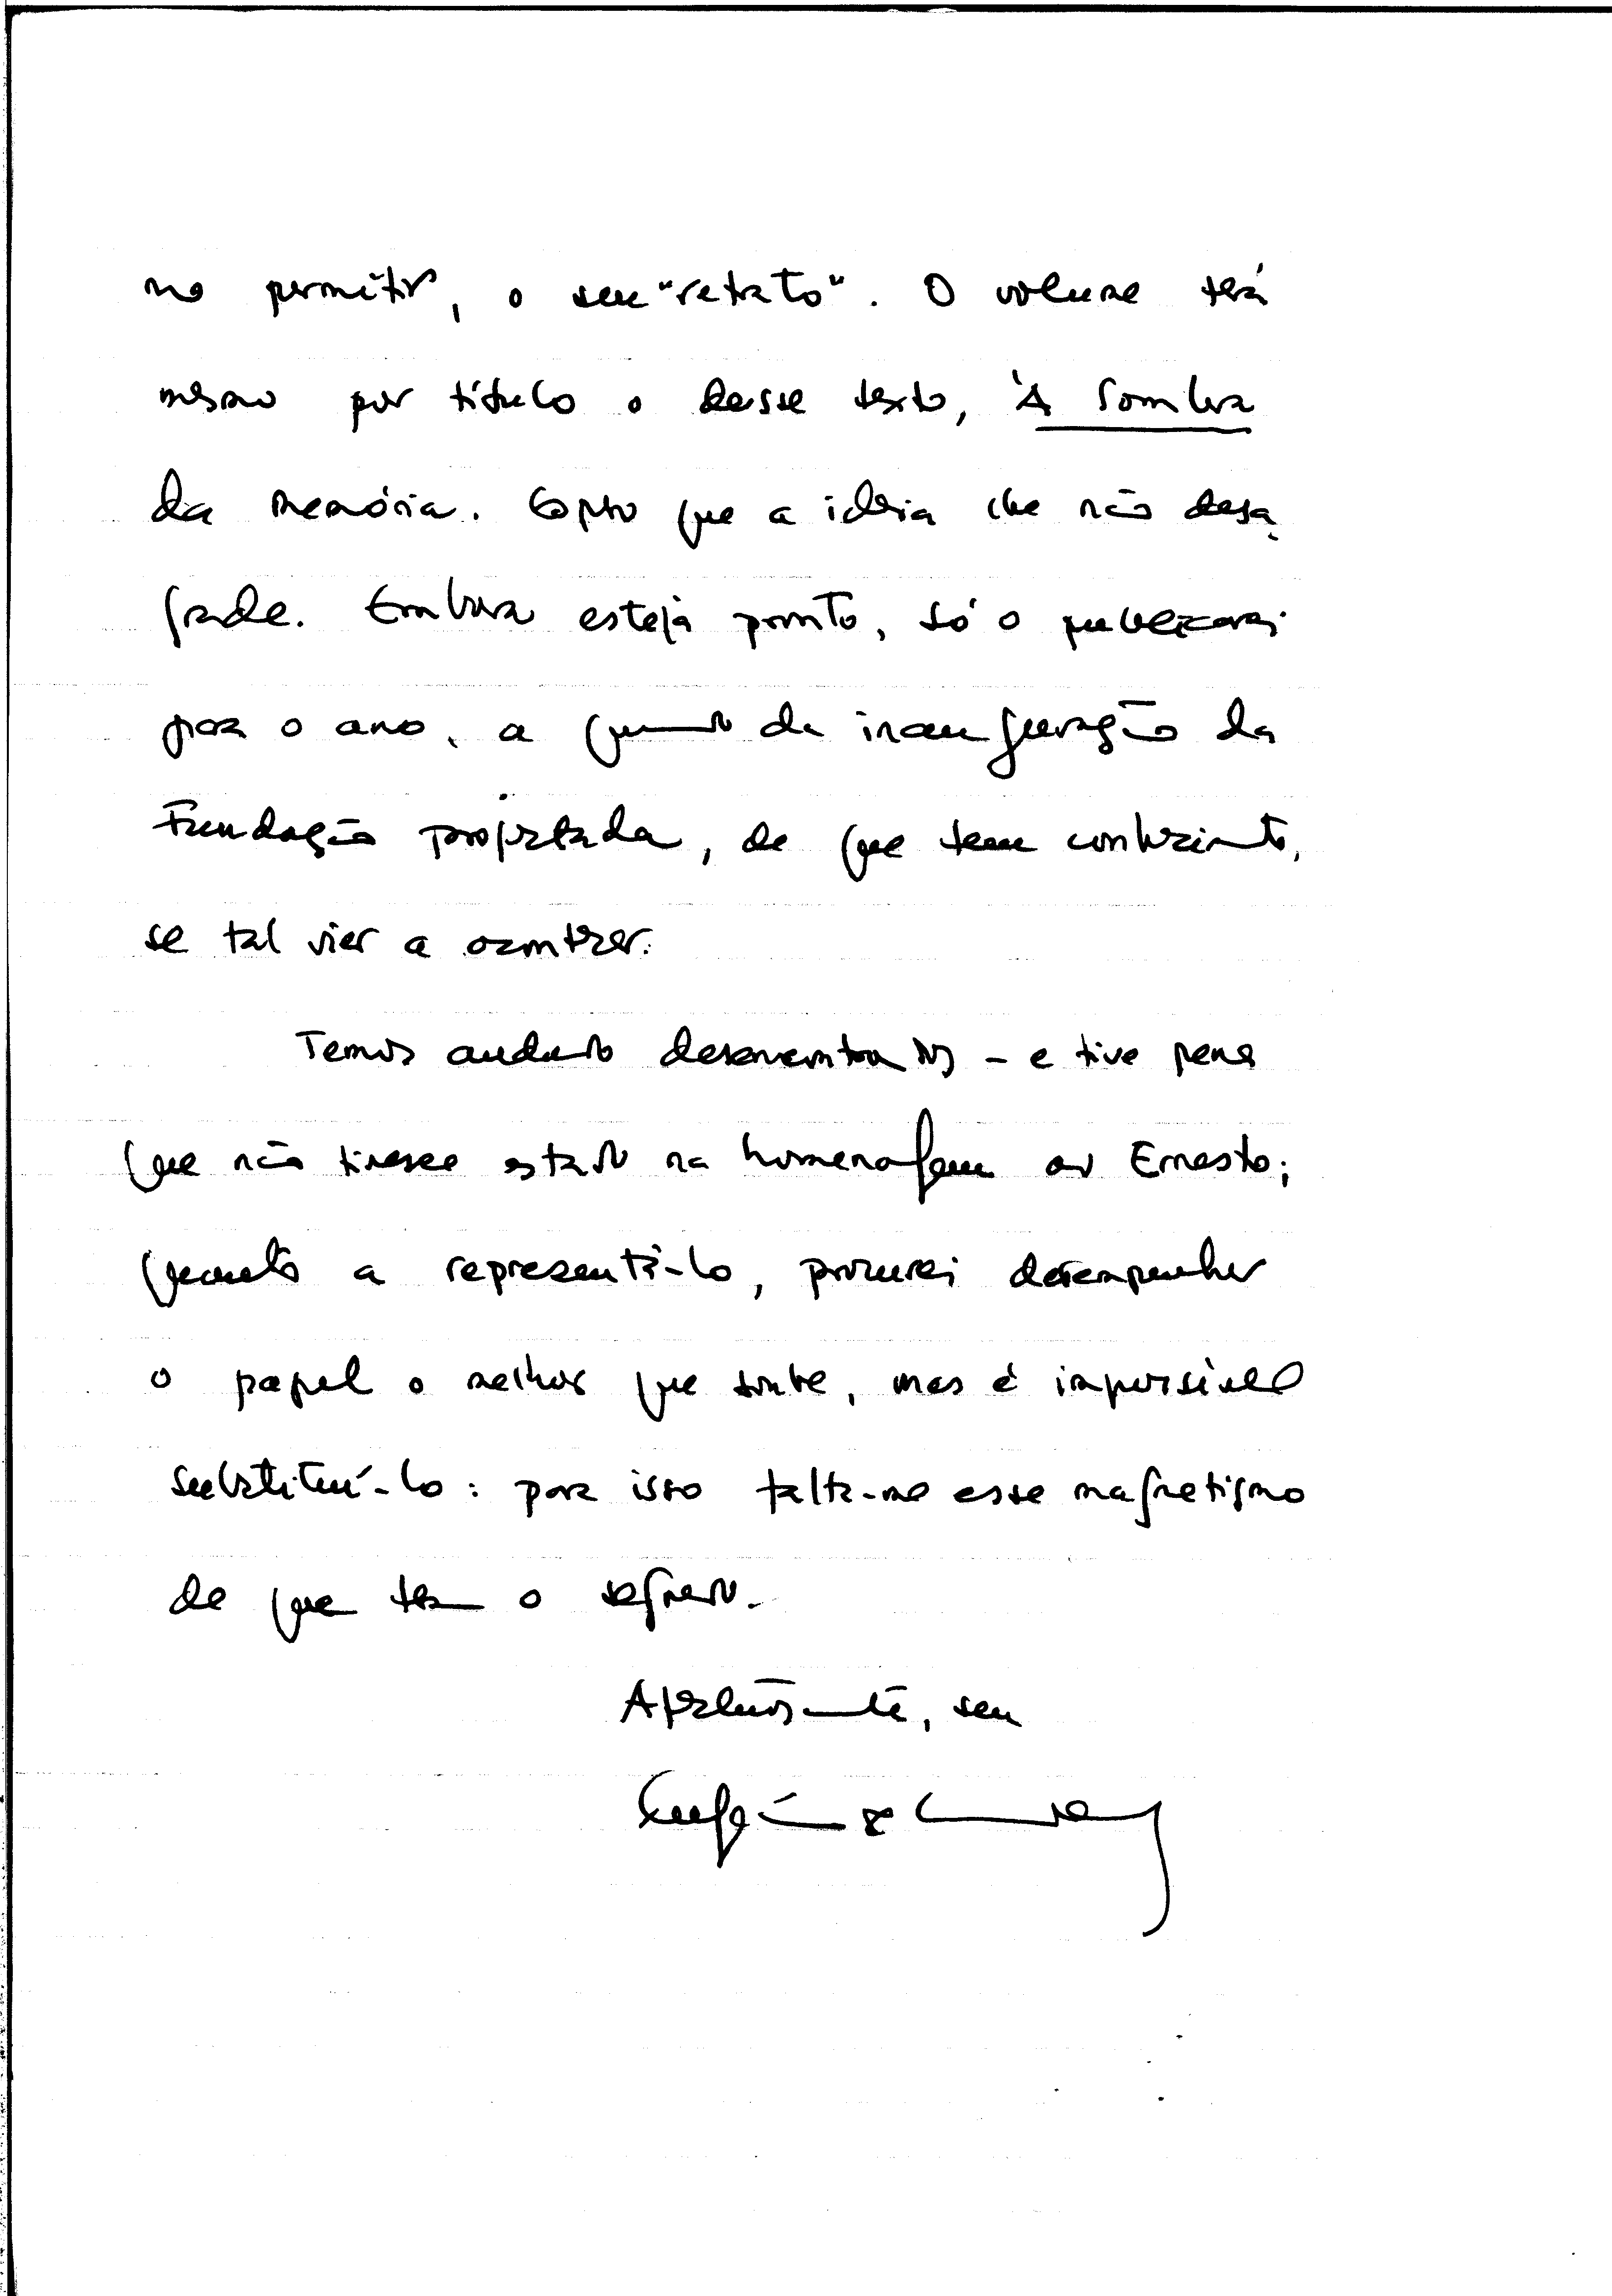 mo permitir, o seu "retrato". O volume terá
mesmo por título o desse texto, À Sombra
da memória. Espero que a ideia lhe não desa
grade. Embora esteja pronto, só o publicarei
para o ano, a quando da inauguração da
Fundação projectada, de que tem conhecimento,
se tal vier a acontecer.
Temos andado desencontrados – e tive pena
que não tivesse estado na homenagem ao Ernesto;
quanto a representá-lo, procurei desempenhar
o papel o melhor que soube, mas é impossível
substituí-lo: para isso falta-me esse magnetismo
de que tem o segredo.
Afectuosamente, seu
Eugénio de Andrade